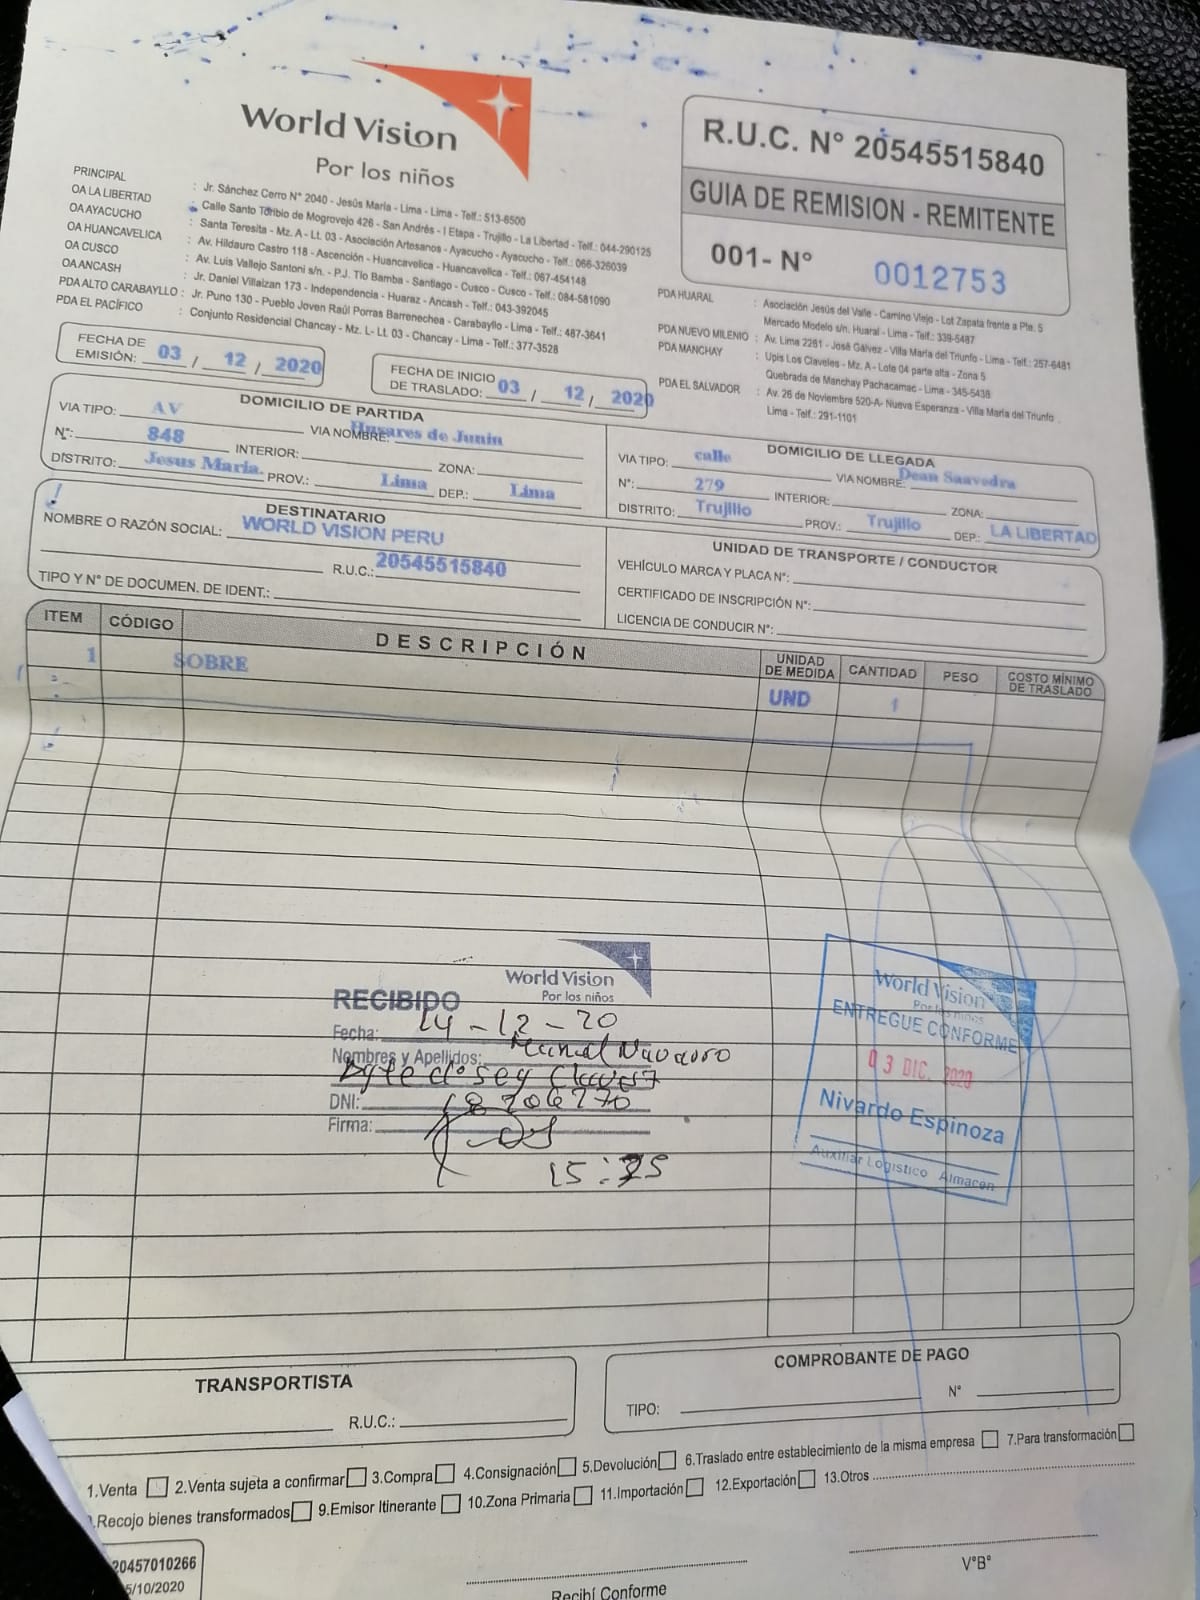 World Vision
Por los niños
R.U.C. N° 20545515840
GUIA DE REMISION - REMITENTE
001- N° 0012753
PRINCIPAL : Jr. Sánchez Cerro N° 2040 - Jesús María - Lima - Lima - Telf.: 513-6500
OA LA LIBERTAD : Calle Santo Toribio de Mogrovejo 426 - San Andrés - I Etapa - Trujillo - La Libertad - Telf.: 044-290125
OA AYACUCHO : Santa Teresita - Mz. A - Lt. 03 - Asociación Artesanos - Ayacucho - Ayacucho - Telf.: 066-326039
OA HUANCAVELICA : Av. Hildauro Castro 118 - Ascención - Huancavelica - Huancavelica - Telf.: 067-454148
OA CUSCO : Av. Luis Vallejo Santoni s/n. - P.J. Tío Bamba - Santiago - Cusco - Cusco - Telf.: 084-581090
OA ANCASH : Jr. Daniel Villaizan 173 - Independencia - Huaraz - Ancash - Telf.: 043-392045
PDA ALTO CARABAYLLO : Jr. Puno 130 - Pueblo Joven Raúl Porras Barrenechea - Carabayllo - Lima - Telf.: 487-3641
PDA EL PACÍFICO : Conjunto Residencial Chancay - Mz. L- Lt. 03 - Chancay - Lima - Telf.: 377-3528
PDA HUARAL : Asociación Jesús del Valle - Camino Viejo - Lot Zapata frente a Pte. 5
Mercado Modelo s/n. Huaral - Lima - Telf.: 339-5487
PDA NUEVO MILENIO : Av. Lima 2261 - José Gálvez - Villa María del Triunfo - Lima - Telf.: 257-6481
PDA MANCHAY : Upis Los Claveles - Mz. A - Lote 04 parte alta - Zona 5
Quebrada de Manchay Pachacamac - Lima - 345-5438
PDA EL SALVADOR : Av. 26 de Noviembre 520-A- Nueva Esperanza - Villa María del Triunfo
Lima - Telf.: 291-1101
FECHA DE EMISIÓN: 03 / 12 / 2020
FECHA DE INICIO DE TRASLADO: 03 / 12 / 2020
DOMICILIO DE PARTIDA
VIA TIPO: AV VIA NOMBRE: Husares de Junin
N°: 848 INTERIOR: ZONA:
DISTRITO: Jesus Maria. PROV.: Lima DEP.: Lima
DOMICILIO DE LLEGADA
VIA TIPO: calle VIA NOMBRE: Dean Saavedra
N°: 279 INTERIOR: ZONA:
DISTRITO: Trujillo PROV.: Trujillo DEP.: LA LIBERTAD
DESTINATARIO
NOMBRE O RAZÓN SOCIAL: WORLD VISION PERU
R.U.C.: 20545515840
TIPO Y N° DE DOCUMEN. DE IDENT.:
UNIDAD DE TRANSPORTE / CONDUCTOR
VEHÍCULO MARCA Y PLACA N°:
CERTIFICADO DE INSCRIPCIÓN N°:
LICENCIA DE CONDUCIR N°:
ITEM CÓDIGO DESCRIPCIÓN UNIDAD DE MEDIDA CANTIDAD PESO COSTO MÍNIMO DE TRASLADO
1 SOBRE UND 1
World Vision
Por los niños
RECIBIDO
Fecha: 14-12-20
Nombres y Apellidos: Navarro
DNI: 18206270
Firma:
15:25
World Vision
Por los niños
ENTREGUE CONFORME
03 DIC. 2020
Nivardo Espinoza
Auxiliar Logistico Almacén
TRANSPORTISTA
R.U.C.:
COMPROBANTE DE PAGO
TIPO: N°
1.Venta 2.Venta sujeta a confirmar 3.Compra 4.Consignación 5.Devolución 6.Traslado entre establecimiento de la misma empresa 7.Para transformación
.Recojo bienes transformados 9.Emisor Itinerante 10.Zona Primaria 11.Importación 12.Exportación 13.Otros
20457010266
5/10/2020
Recibí Conforme
V°B°